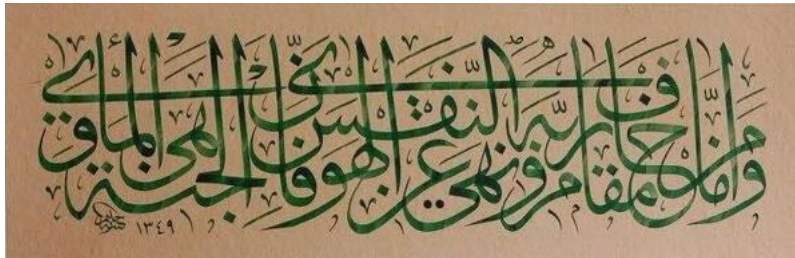 وأما من خاف مقام ربه ونهى النفس عن الهوى فإن الجنة هي المأوى
١٣٤٩